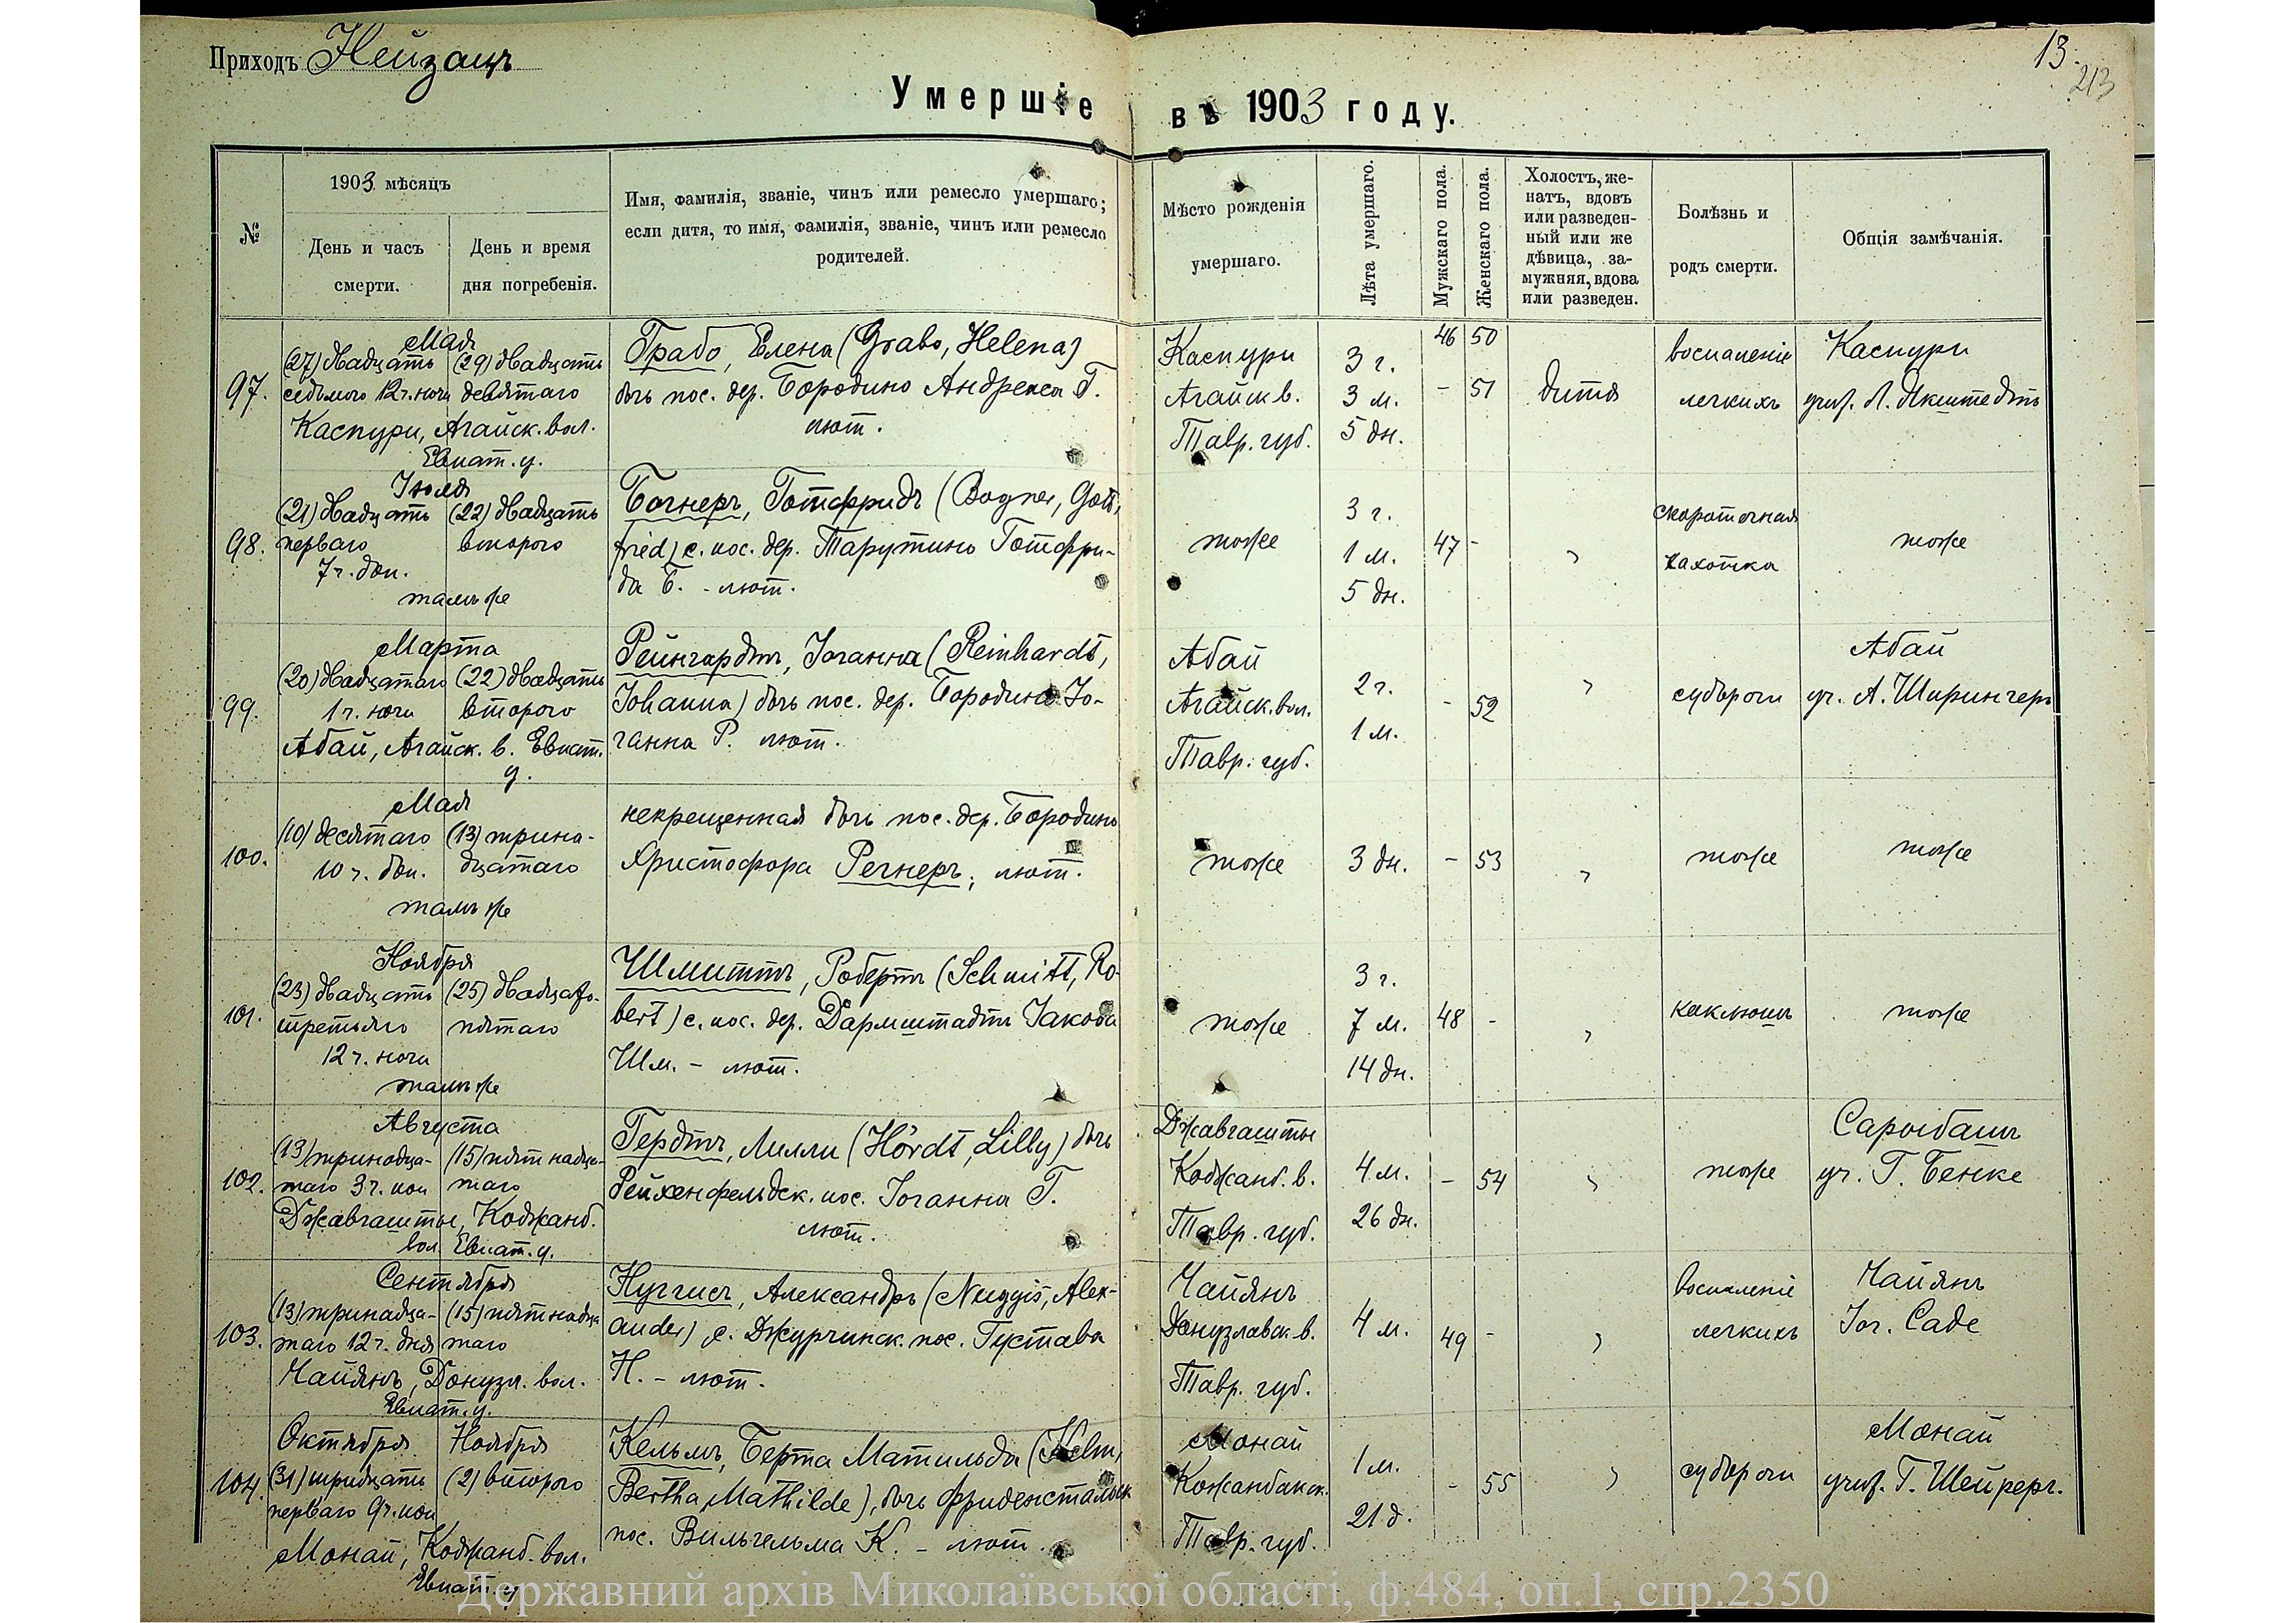 Приходъ Нейзацъ
13.
213
Умершіе въ 1903 году.
№
1903 мѣсяцъ
День и часъ смерти.
День и время дня погребенія.
Имя, фамилія, званіе, чинъ или ремесло умершаго;
если дитя, то имя, фамилія, званіе, чинъ или ремесло
родителей.
Мѣсто рожденія
умершаго.
Лѣта умершаго.
Мужскаго пола.
Женскаго пола.
Холостъ, же-
натъ, вдовъ
или разведен-
ный или же
дѣвица, за-
мужняя, вдова
или разведен.
Болѣзнь и
родъ смерти.
Общія замѣчанія.
46 50
97.
Мая
(27) двадцать (29) двадцать
седьмого 12 ч. ночи девятаго
Каспури, Агайск. вол.
Евпат. у.
Грабо, Елена (Grabo, Helena)
дочь пос. дер. Бородино Андреаса Г.
лют.
Каспури
Агайск в.
Тавр. губ.
3 г.
3 м.
5 дн.
- 51
дитя
воспаленіе
легкихъ
Каспури
учит. Л. Икштедтъ
98.
Іюля
(21) двадцать (22) двадцать
перваго второго
7 ч. доп.
тамъ же
Богнеръ, Готфридъ (Bogner, Gott,
fried) с. пос. дер. Тарутино Готфри-
да Б. - лют.
тоже
3 г.
1 м.
5 дн.
47 -
"
скоротечная
чахотка
тоже
99.
Марта
(20) двадцатаго (22) двадцать
1 ч. ночи второго
Абай, Агайск. в. Евпат.
у.
Рейнгардтъ, Іоганна (Reinhardt,
Johanna) дочь пос. дер. Бородино Іо-
ганна Р. лют.
Абай
Агайск. вол.
Тавр. губ.
2 г.
1 м.
- 52
"
судороги
Абай
уч. А. Ширингеръ
100.
Мая
(10) десятаго (13) трина-
10 ч. доп. дцатаго
тамъ же
некрещенная дочь пос. дер. Бородино
Христофора Регнеръ, лют.
тоже
3 дн.
- 53
"
тоже
тоже
101.
Ноября
(23) двадцать (25) двадцать
третьяго пятаго
12 ч. ночи
тамъ же
Шмиттъ, Робертъ (Schmitt, Ro-
bert) с. пос. дер. Дармштадтъ Іакова
Шм. - лют.
тоже
3 г.
7 м.
14 дн.
48 -
"
коклюшъ
тоже
102.
Августа
(13) тринадца- (15) пятнадца-
таго 3 ч. поп таго
Джавгашты, Коджанб.
вол. Евпат. у.
Гердтъ, Лилли (Hördt, Lilly) дочь
Рейхенфельдск. пос. Іоганна Г.
лют.
Джавгашты
Коджанб. в.
Тавр. губ.
4 м.
26 дн.
- 54
"
тоже
Сарыбашъ
уч. Г. Бенке
103.
Сентября
(13) тринадца- (15) пятнадца
таго 12 ч. дня таго
Чаянъ, Донузл. вол.
Евпат. у.
Нуггисъ, Александръ (Nuggis, Alex-
ander) с. Джурчинск. пос. Густава
Н. - лют.
Чаянъ
Донузлавск. в.
Тавр. губ.
4 м.
49 -
"
воспаленіе
легкихъ
Чаянъ
Іог. Саде
104.
Октября Ноября
(31) тридцать (2) второго
перваго 9 ч. поп
Монай, Коджанб. вол.
Евпат. у.
Кельмъ, Берта Матильда (Kelm,
Bertha Mathilde), дочь Фриденстальск
пос. Вильгельма К. - лют.
Монай
Кожанбакск.
Тавр. губ.
1 м.
21 д.
- 55
"
судороги
Монай
учит. Г. Шейрергъ.
Державний архів Миколаївської області, ф.484, оп.1, спр.2350